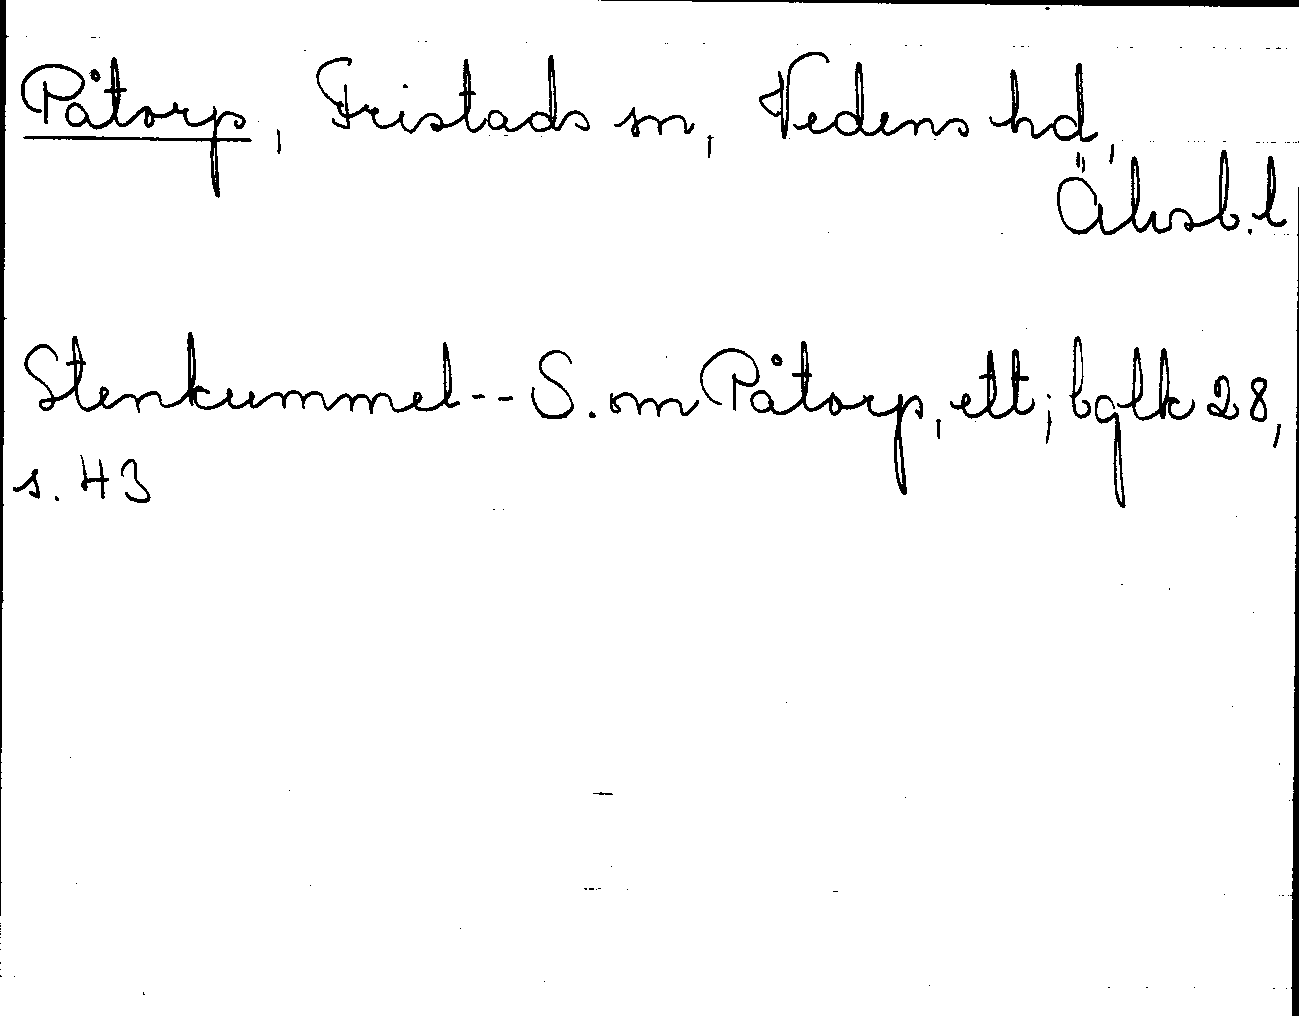 Påtorp, Fristads sn, Vedens hd,
Älvsb.l
Stenkummel -- S. om Påtorp, ett; bglk 28,
s. 43